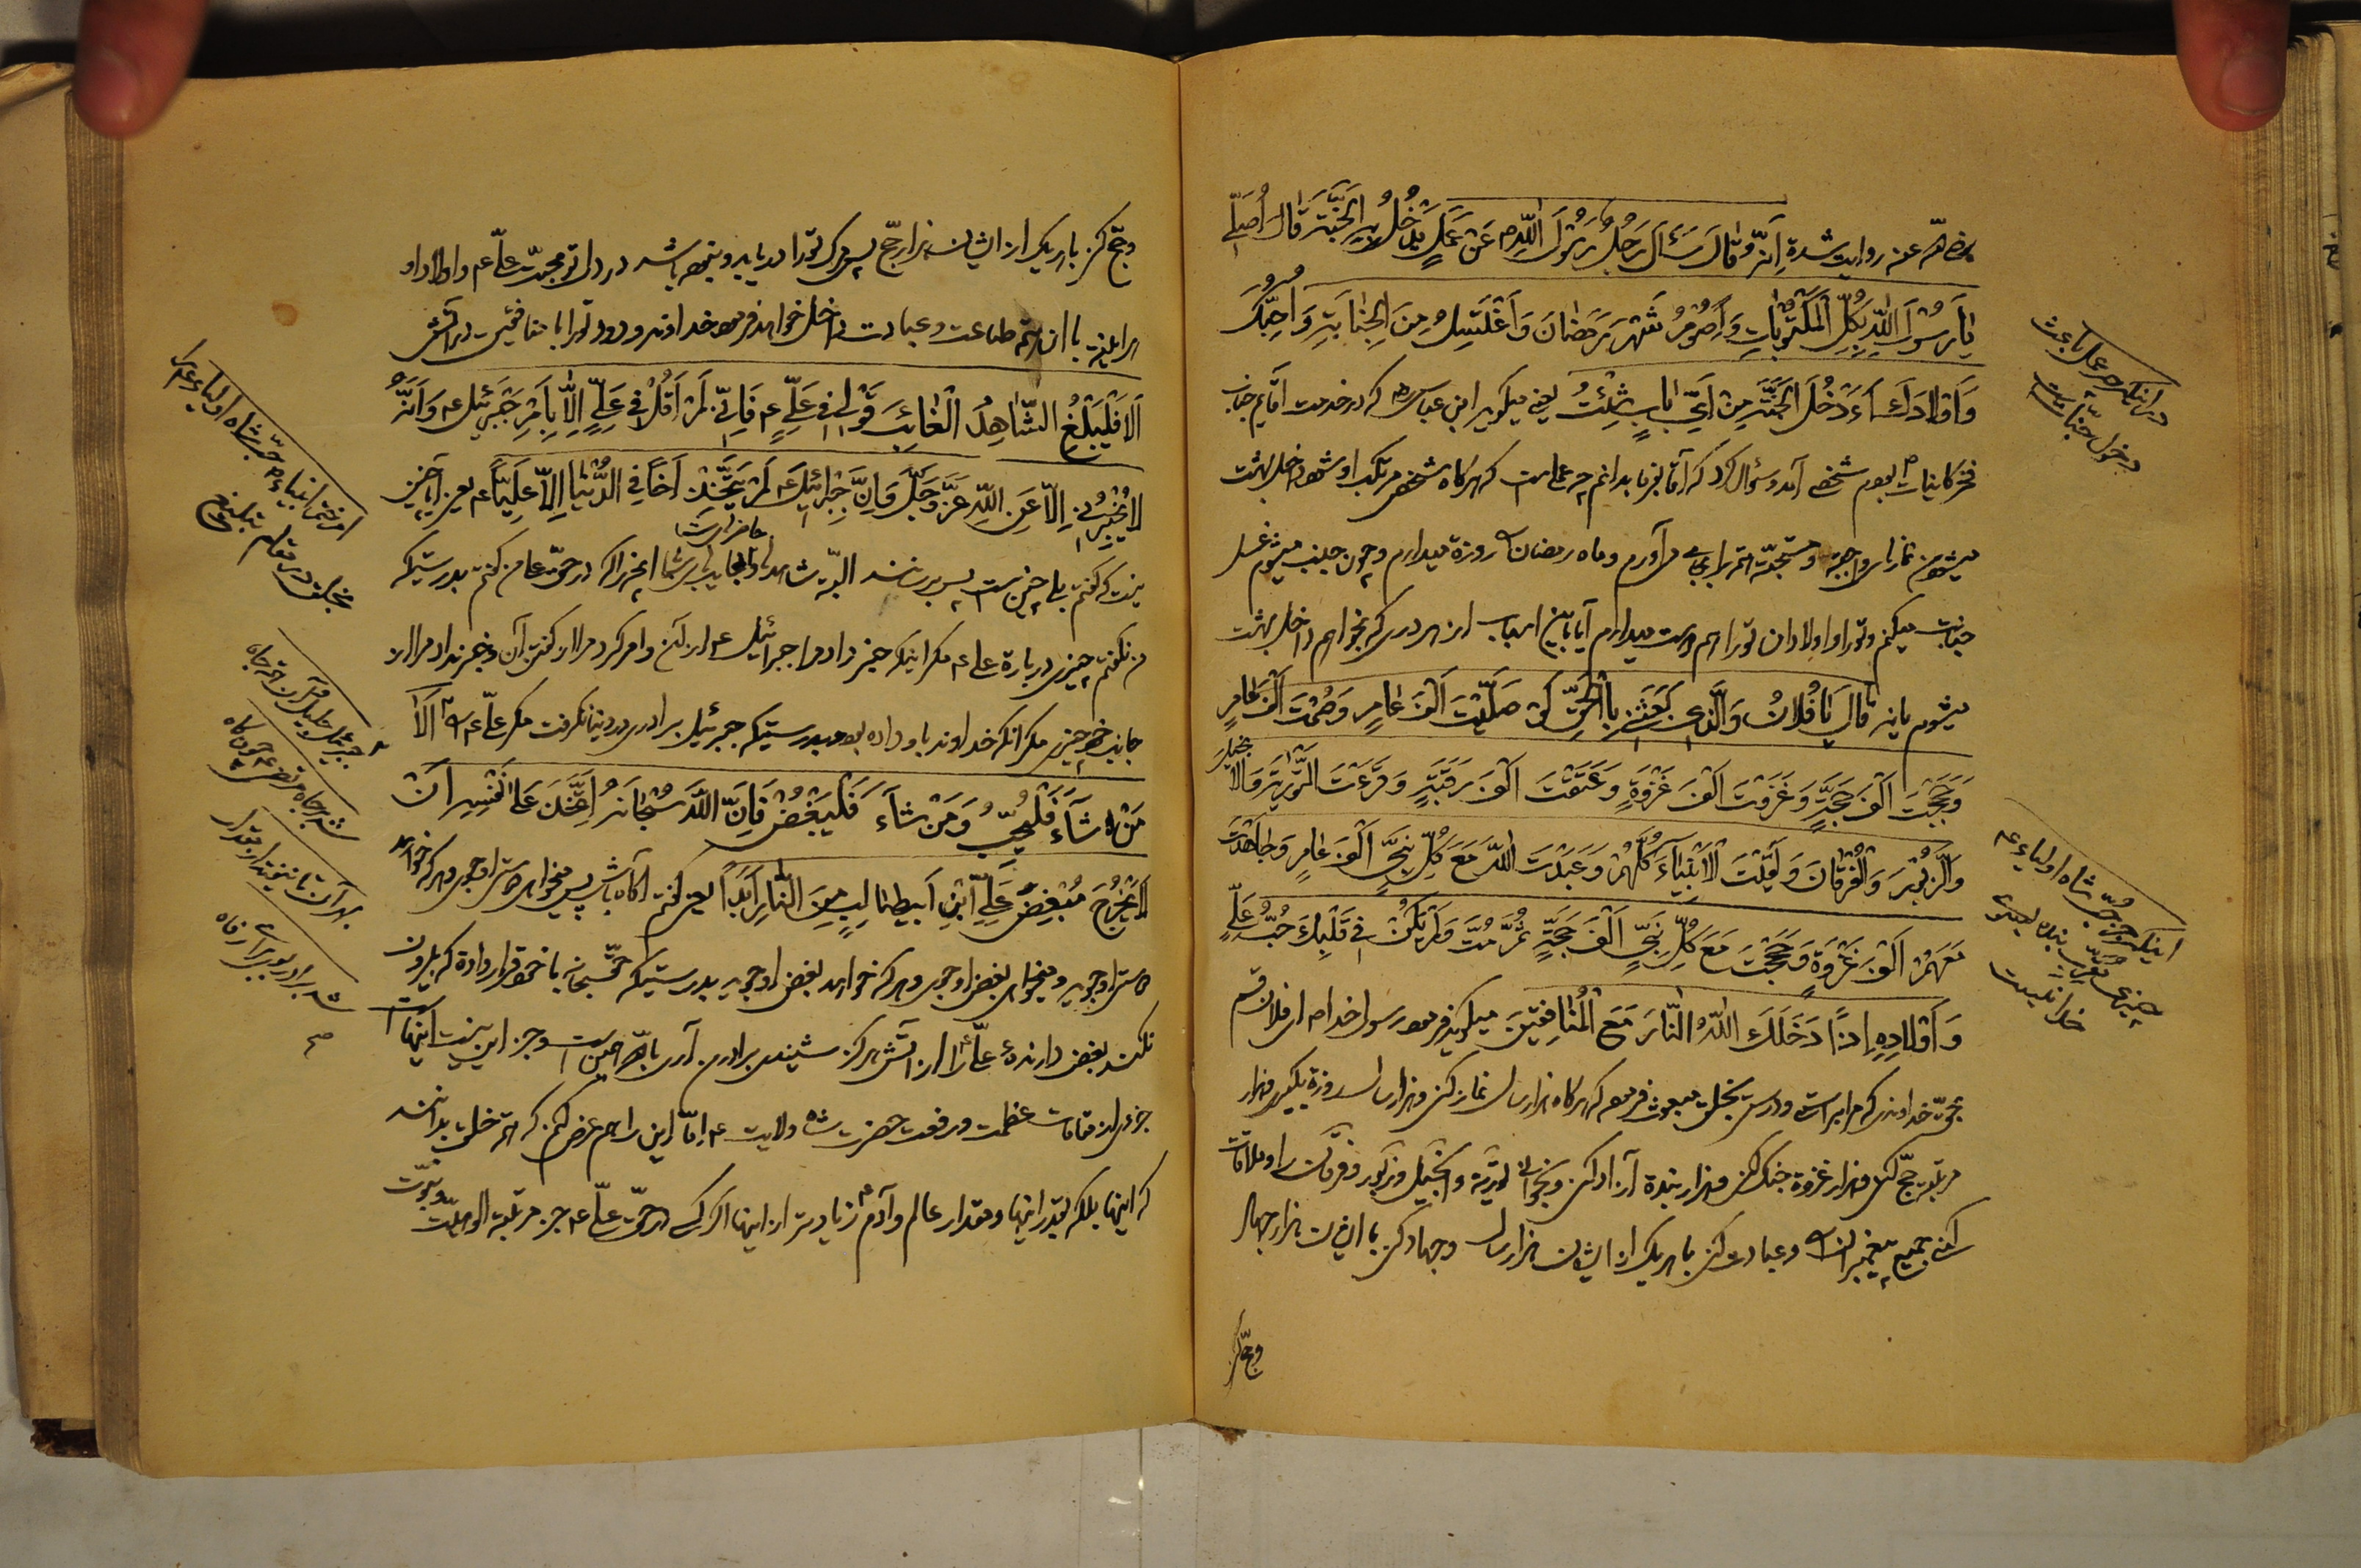 رضی اللّه عنه روایت شده اِنَّهُ قٰالَ سَئَالَ رَجُلٌ رَسُوْلَ اللّٰهِ ص عَنْ عَمَلٍ یَدْخُلُ بِهِ الْجَنَّةَ قٰالَ اُصَلّیٖ
یٰا رَسُوْلَ اللّٰهِ بِکُلِّ الْمَکْتُوْبٰاتِ وَ اَصُوْمُ شَهْرَ رَمَضٰانَ وَ اَغْتَسِلُ مِنَ الْجِنٰابَةِ وَ اُحِبُّکَ
وَ اَوْلادَکَ اَءَدْخُلُ الْجَنَّةَ مِنْ اَیِّ بٰابٍ شِئْتُ یعنی میگوید ابن عباس رض که در خدمت آقایم جناب
فخر کاینات ص بودم شخصی آمد و سؤال کرد که آقا بفرما بدانم چه عملست که هرگاه شخص مرتکب او شود داخل بهشت
میشود من نمازهای واجبه و مستحبّه همه را بجای می‌آورم و ماه رمضان را روزه میدارم و چون جنب میشوم غسل
جنابت میکنم و تو را و اولادان تو را هم دوست میدارم آیا باین اسباب از هر دری که بخواهم داخل بهشت
میشوم یا نه قٰالَ یٰا فُلانُ وَ الَّذیٖ بَعَثَنیٖ بِالْحَقِّ لَوْ صَلَّیْتَ اَلْفَ عٰامٍ وَ صُمْتَ اَلْفَ عٰامٍ
وَ حَجَجْتَ اَلْفَ حَجَّةٍ وَ غَزَوْتَ اَلْفَ غَزْوَةٍ وَ عَتَقْتَ اَلْفَ رَقَبَةٍ وَ قَرَءْتَ التَّوْرٰیةَ وَ الْاِنْجیٖلَ
وَ الزَّبُوْرَ وَ الْفُرْقٰانَ وَ لَقیٖتَ الْاَنْبِیٰآءَ کُلَّهُمْ وَ عَبَدْتَ اللّٰهَ مَعَ کُلِّ نَبِیٍّ اَلْفَ عٰامٍ وَ جٰاهَدْتَ
مَعَهُمْ اَلْفَ غَزْوَةٍ وَ حَجَجْتَ مَعَ کُلِّ نَبِیٍّ اَلْفَ حَجَّةٍ ثُمَّ مُتَّ وَ لَمْ یَکُنْ فیٖ قَلْبِکَ حُبُّ عَلِیٍّ
وَ اَوْلادِهٖ اِذاً دَخَلَکَ اللّٰهُ النّٰارَ مَعَ الْمُنٰافِقیٖنَ میگوید فرمود رسول خدا ص ای فلان قسم
بحقّ خداوندی که مرا براستی و درستی بخلق مبعوث فرمود که هرگاه هزار سال نماز کنی و هزار سال روزه بگیری و هزار
مرتبه حجّ کنی و هزار غزوه جنگ کنی و هزار بنده آزاد کنی و بخوانی توریة و انجیل و زبور و فرقان را و ملاقات
کنی جمیع پیغمبران را و عبادت کنی با هر یک از ایشان هزار سال و جهاد کنی با ایشان هزار جهاد
و حجّ کنی
در اینکه چه عمل باعث
دخول جنّات است
اینکه بی حُبّ شاه اولیاء ع
چیزی مقرّب بنده بسوی
خدا نیست
و حجّ کنی با هر یک از ایشان هزار حجّ پس مرگ تو را دریابد و نبوده باشد در دل تو محبّت علیّ ع و اولاد او
هر آینه با این همه طاعت و عبادت داخل خواهد فرمود خداوند ودود تو را با منافقین در آتش
اَلا فَلْیُبَلِّغُ الشّٰاهِدُ الْغٰائِبَ قَوْلیٖ فیٖ عَلِیٍّ ع فَاِنّیٖ لَمْ اَقُلْ فیٖ عَلِیٍّ اِلّٰا بِاَمْرِ جَبْرَئیٖل ع وَ اَنَّهُ
لا یُخْبِرُنیٖ اِلّا عَنِ اللّٰهِ عَزَّ وَ جَلَّ وَ اِنَّ جَبْرَئیٖلَ ع لَمْ یَتَّخِذْ اَخاً فیٖ الدُّنْیٰا اِلّا عَلِیّاً ع یعنی آیا چنین
نیست که گفتم بلی چنین است پس برسانند البتّه شاهدان و حاضران شما بغایبان شما آنچه را که در حقّ علی من گفتم بدرستیکه
من نگفتم چیزی درباره علی ع مگر اینکه خبر داد مرا جبرائیل ع از آن و امر کرد مرا در گفتن آن و خبر نداد مرا از
جانب خود چیزی مگر آنکه خداوند باو داده بود و بدرستیکه جبرئیل برادری در دنیا نگرفت مگر علیّ ع را اَلا
مَنْ شٰآءَ فَلْیُحِبَّ وَ مَنْ شٰآءَ فَلْیُبْغِضْ فَاِنَّ اللّٰهَ سُبْحٰانَهُ اِتَّخَذَ عَلیٰ نَفْسِهٖ اَنْ
لا یُخْرِجَ مُبْغِضَ عَلِیِّ ابْنِ اَبیٖطٰالِبٍ مِنَ النّٰارِ اَبَداً یعنی گفتم آگاه باش پس میخواهی دوستی او جوی و هر که خواهد
دوستی او جوید و میخواهی بغض او جوی و هر که خواهد بغض او جوید بدرستیکه حقّ سبحانه با خود قرار داده که بیرون
نکند بغض دارنده علیّ را از آتش هرگز شنیدی برادر من آری باللّه چنین است و جز این نیست اینها
جزئی از مقامات عظمت و رفعت حضرت شاه ولایت ع امّا این را هم عرض کنم که همه خلق بدانند
که اینها بلکه بقدر اینها و مقدار عالم و آدم زیادتر از اینها اگر کسی در حقّ علیّ ع جز مرتبه الوهیّت و نبوّت
امر ختم انبیاء ص بحبّ شاه اولیاء ع که
بخلق در مقام تبلیغ
جبرئیل جلیل قرآن
شد برادر بهر رفاه